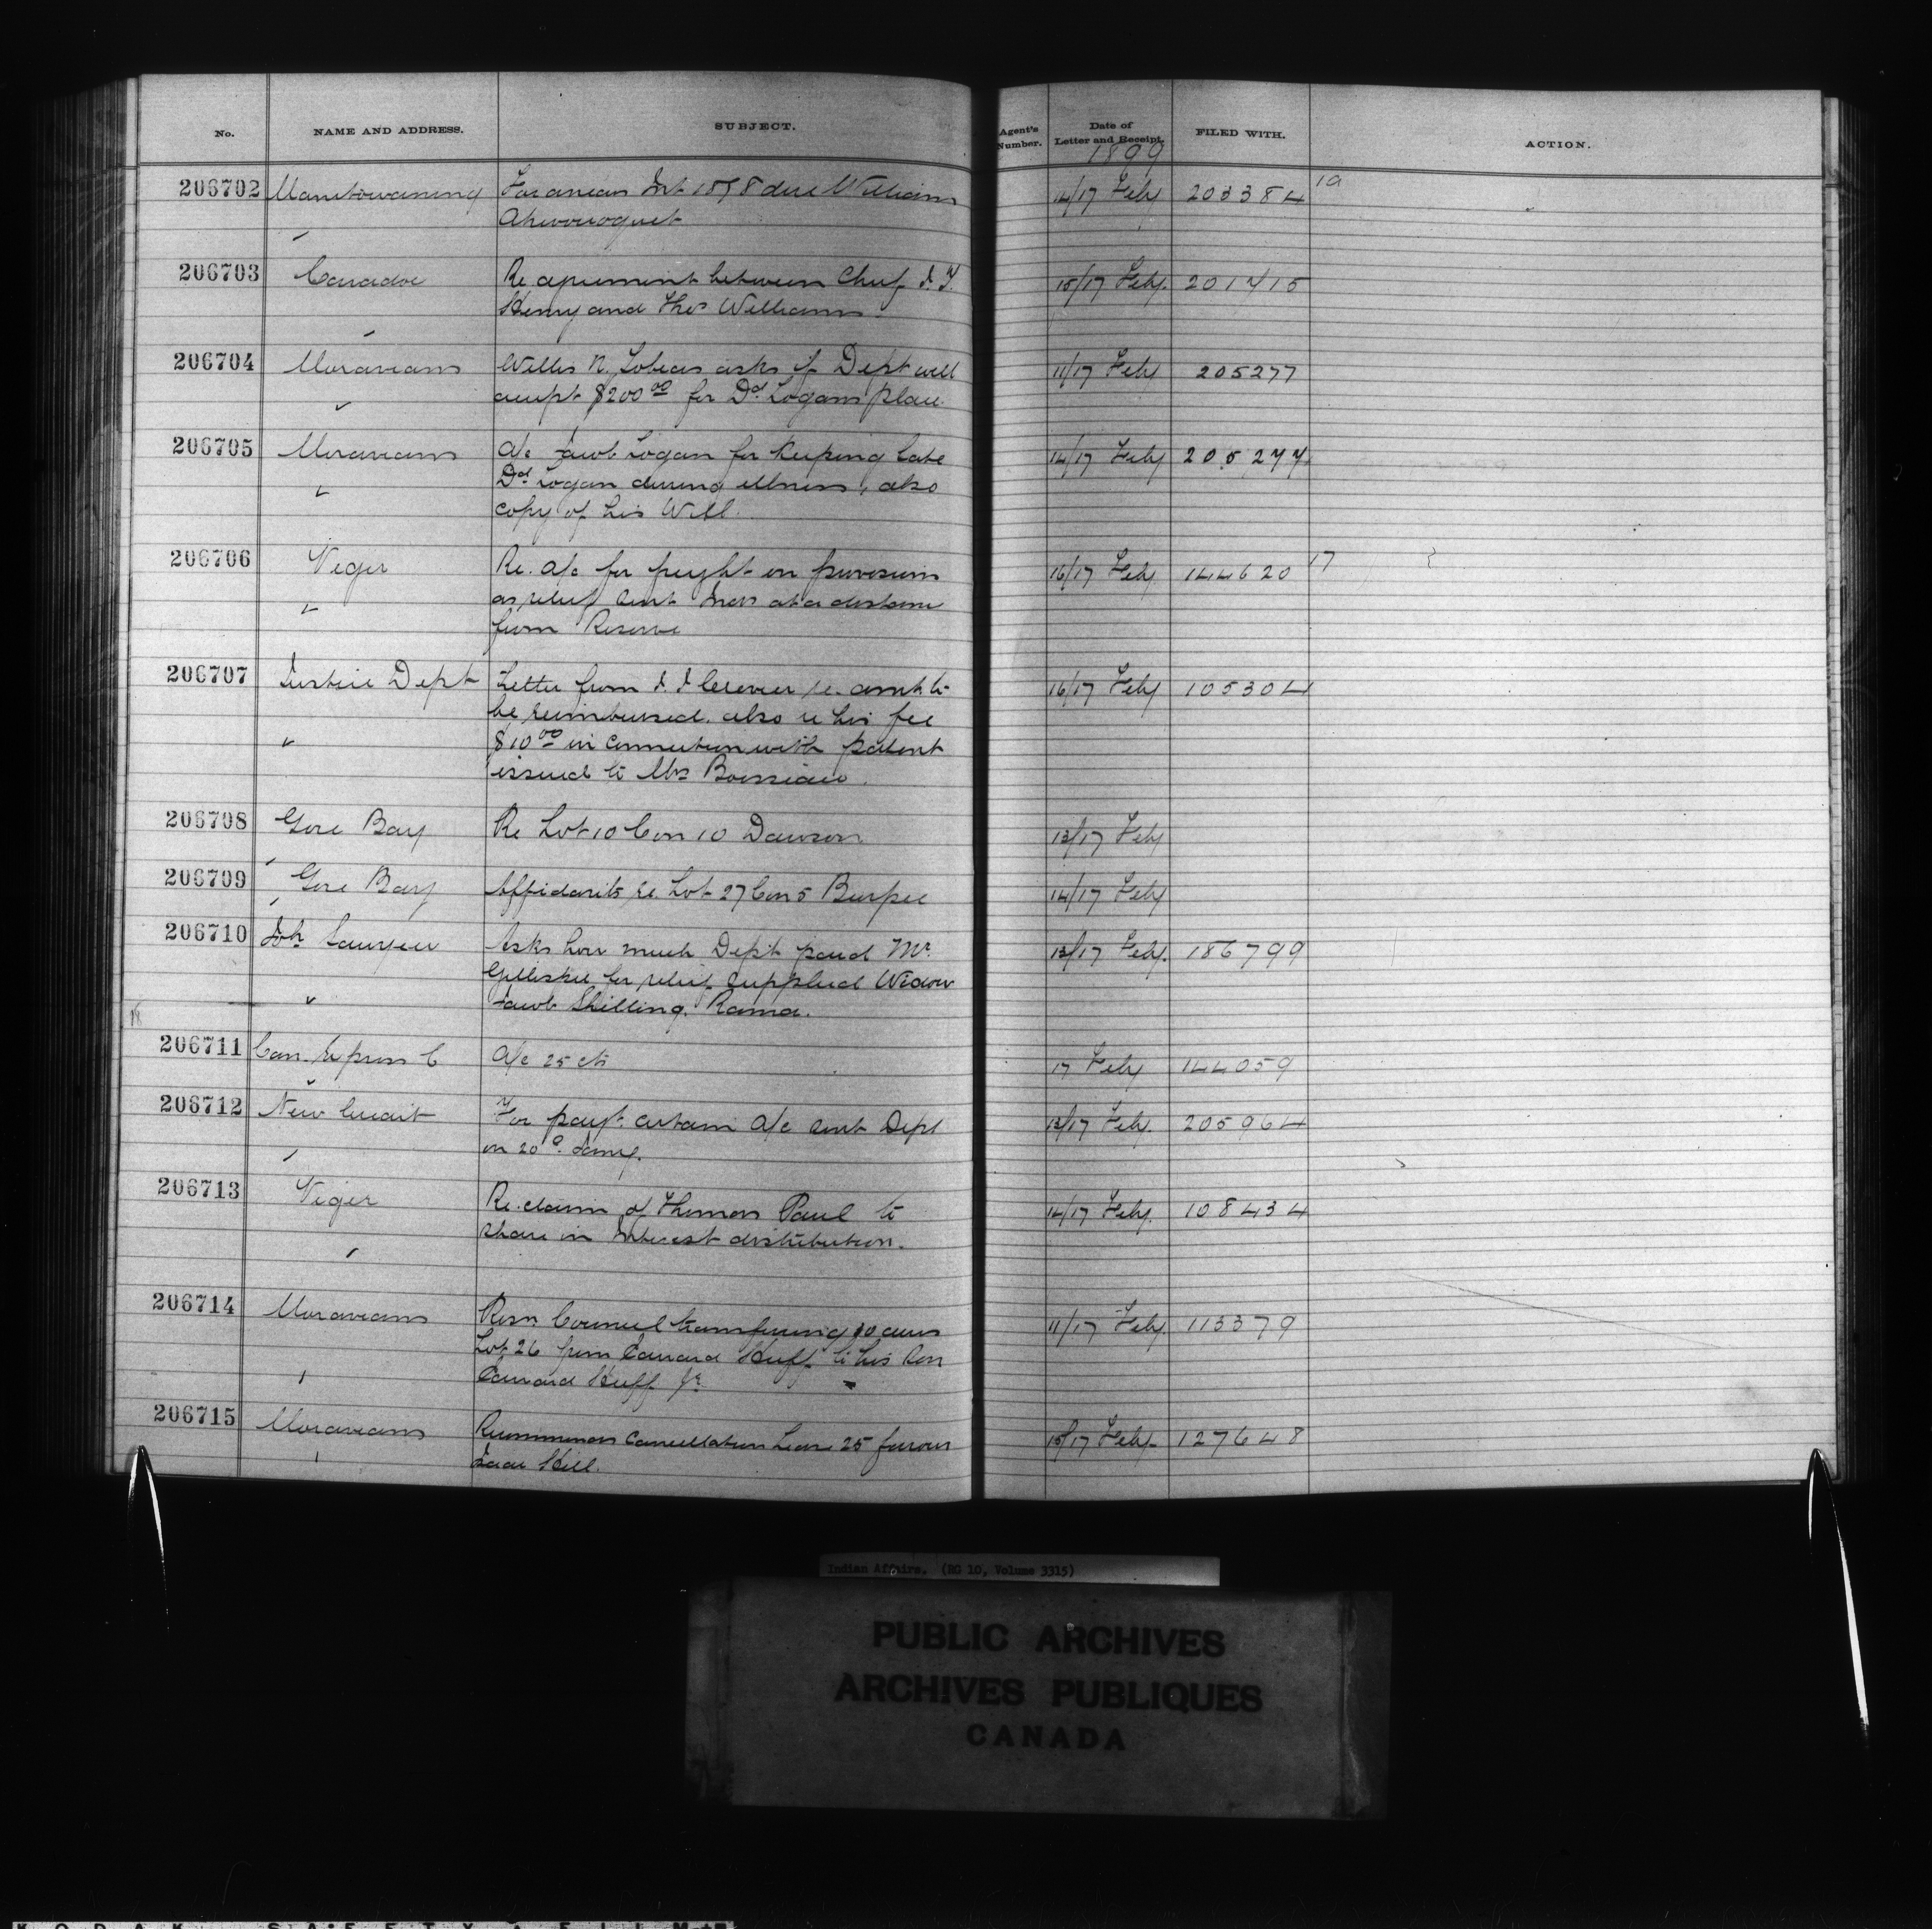 No. NAME AND ADDRESS. SUBJECT. Agent's Number. Date of Letter and Receipt. FILED WITH. ACTION.
1899
206702 Manitowaning For arrears Int 1898 due William 14/17 Feby 203384 19
206703 Caradoc Re agreement between Chief J. F. 15/17 Feby. 201715
Henry and Thos Williams.
206704 Moravians Willis N. Tobias asks if Dept will 11/17 Feby 205277
accept $200 00 for Dd Logans place.
206705 Moravians A/c Jacob Logan for keeping late 14/17 Feby 205277
Dd Logan during illness, also
copy of his Will.
206706 Viger Re. a/c for freight on provisions 16/17 Feby 144620 17
as relief sent Inds at a distance
from Reserve
206707 Justice Dept Letter from J. J. re. amt to 16/17 Feby 105304
be reimbursed. also re his fee
$10 00 in connection with patent
issued to Mrs
206708 Gore Bay Re Lot 10 Con 10 Dawson 13/17 Feby
206709 Gore Bay Affidavits re. Lot 27 Con 5 Burpee 14/17 Feby
206710 Jos. Sawyer Asks how much Dept paid Mr. 13/17 Feby. 186799
for relief supplied Widow
Jacob Shilling. Rama.
18
206711 Can. Express C A/c 25 cts 17 Feby 144059
206712 New Credit For payt. certain a/c sent Dept 13/17 Feby. 205964
on 20th Jany.
206713 Viger Re. claim of Thomas Paul to 14/17 Feby. 108434
share in Interest distribution.
206714 Moravians Resn. Council transferring 10 acres 11/17 Feby. 113379
Lot 26 from Edward Huff to his son
Edward Huff Jr.
206715 Moravians Recommends Cancellation Lease 25 favour 15/17 Feby. 127648
Isaac Hill.
Indian Affairs. (RG 10, Volume 3315)
PUBLIC ARCHIVES
ARCHIVES PUBLIQUES
CANADA
KODAK SAFETY FILM